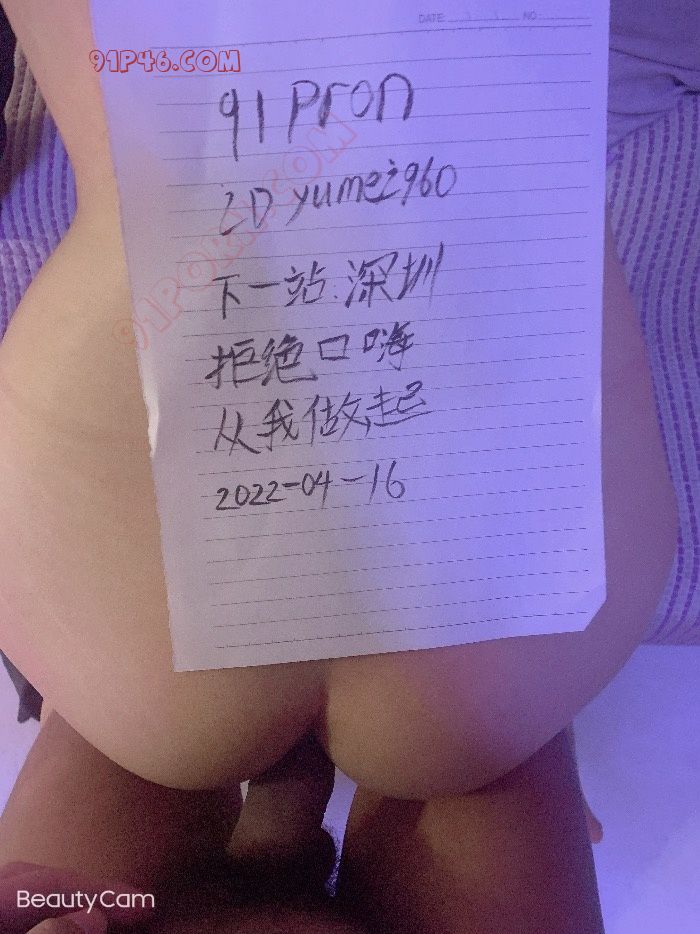 DATE: NO:
91P46.COM
91pron
ID yumei960
下一站.深圳
拒绝口嗨
从我做起
2022-04-16
91PORN.COM
BeautyCam